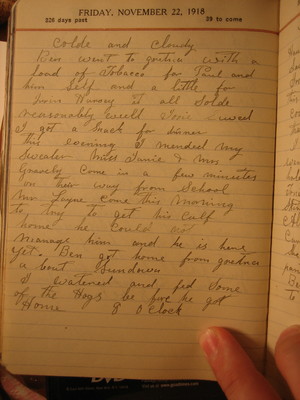 FRIDAY, NOVEMBER 22, 1918
326 days past 39 to come
Colde and cloudy
Ben went to gordner with a
load of Tobacco for Paul and
him Self and a little for
it all Solde
reasonably well
I got a Snack for dinner
This evening I mended my
Sweater Miss Janie & Mrs
Gravely Come in a few minutes
on their way from School
Mr Layne Come this Morning
to try to get his Calf
home he Could not
Manage him and he is here
yet. Ben got home from gordner
a bout Sundown
I and fed Some
of the Hogs be fore he got
Home 8 OClock
DVD